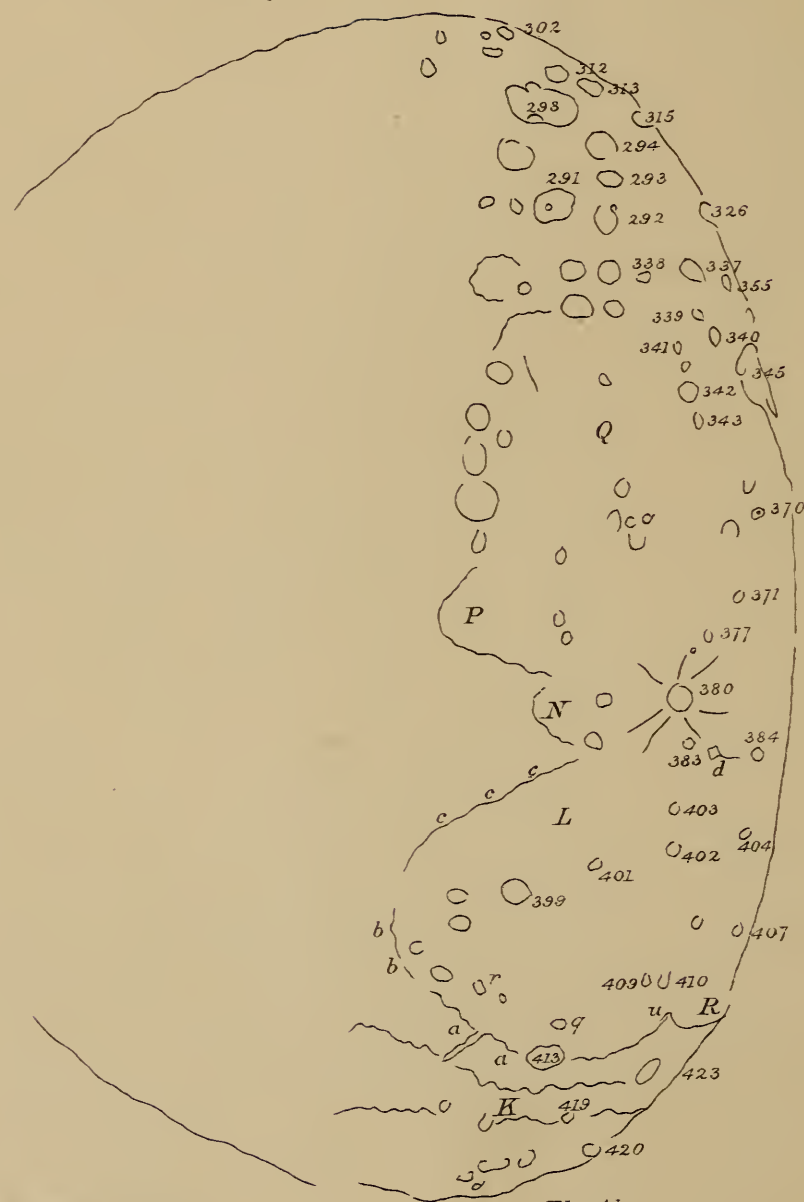 302
312
313
298
315
294
291 293
292
326
338 337
355
339
340
341
345
342
343
Q
370
371
P
377
380
N
384
383
d
c c c
L
403
404
402
401
399
b
407
b
r
409 410
u R
q
a
a 413
423
K 419
420